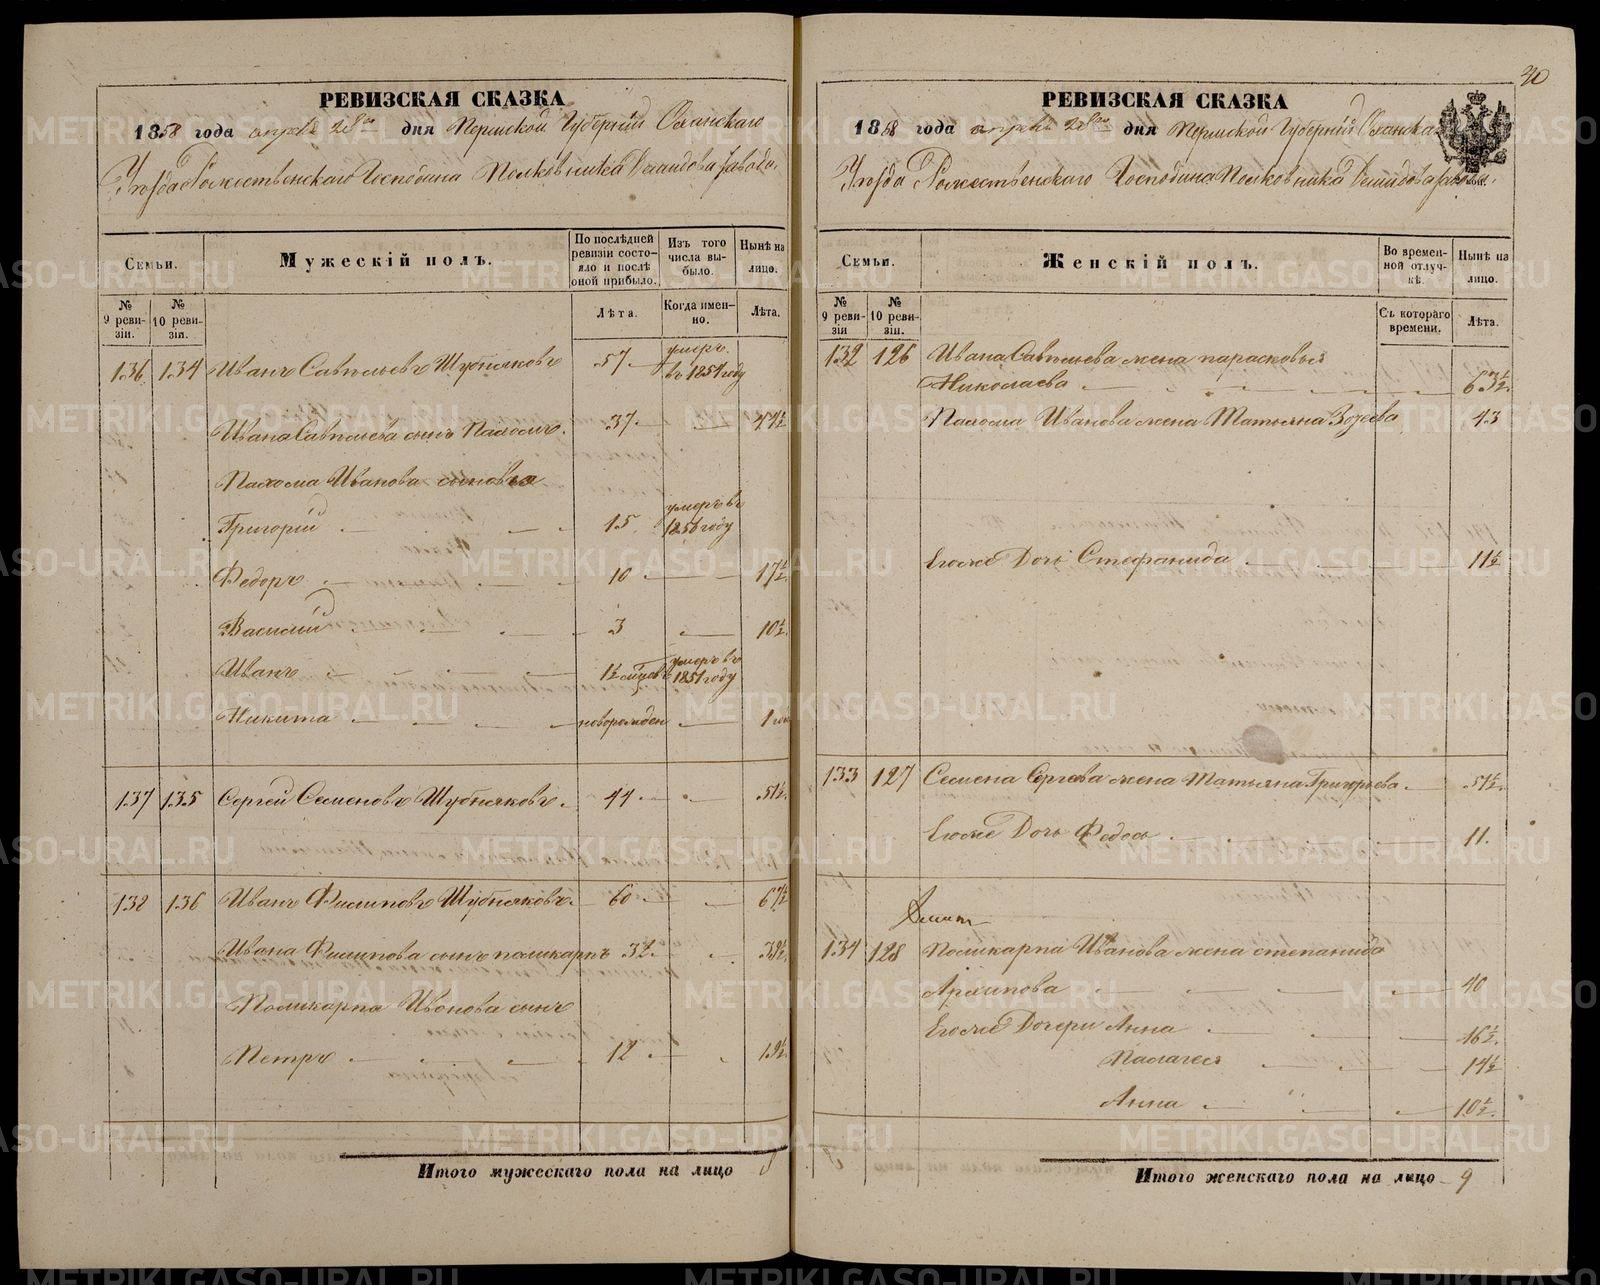 20
РЕВИЗСКАЯ СКАЗКА
1858 года апреля 28го дня Пермской Губернии Оханскаго
Уезда Рожественскаго Господина Полковника Демидова завода.
Семьи.
Мужескій полъ.
По послѣдней ревизіи состояло и послѣ оной прибыло.
Изъ того числа выбыло.
Нынѣ на лицо.
№ 9 ревизіи.
№ 10 ревизіи.
Лѣта.
Когда именно.
Лѣта.
136 134 Иванъ Савельевъ Шубняковъ 57 умеръ въ 1854 году
Ивана Савельева сынъ Пахомъ. 37 47½
Пахома Иванова сыновья
Григорій 15 умеръ въ 1856 году
Федоръ 10 17½
Василий 3 10½
Иванъ умеръ въ 1851 году
Никита новорожден 1 год
137 135 Сергей Семеновъ Шубняковъ. 44 51½
138 136 Иванъ Филиповъ Шубняковъ. 60 67½
Ивана Филипова сынъ поликарпъ 32. 39½
Поликарпа Иванова сынъ
Петръ 12 19½
Итого мужескаго пола на лицо
РЕВИЗСКАЯ СКАЗКА
1858 года апреля 28го дня Пермской Губерніи Оханска
Уезда Рожественскаго Господина Полковника Демидова завода.
Семьи.
Женскій полъ.
Во временной отлучкѣ.
Нынѣ на лицо.
№ 9 ревизіи
№ 10 ревизіи.
Съ котораго времени.
Лѣта.
132 126 Ивана Савельева жена парасковья
Николаева 63½
Пахома Иванова жена Татьяна Зотеева 43
Егоже Дочь Стефанида 11½
133 127 Семена Сергева жена Татьяна Григорьева 51½
Егоже Дочь Федось 11.
134 128 Поликарпа Иванова жена степанида
Архипова 40
Егоже Дочери Анна 16½
Палагея 14½
Анна 10½
Итого женскаго пола на лицо 9
METRIKI.GASO-URAL.RU